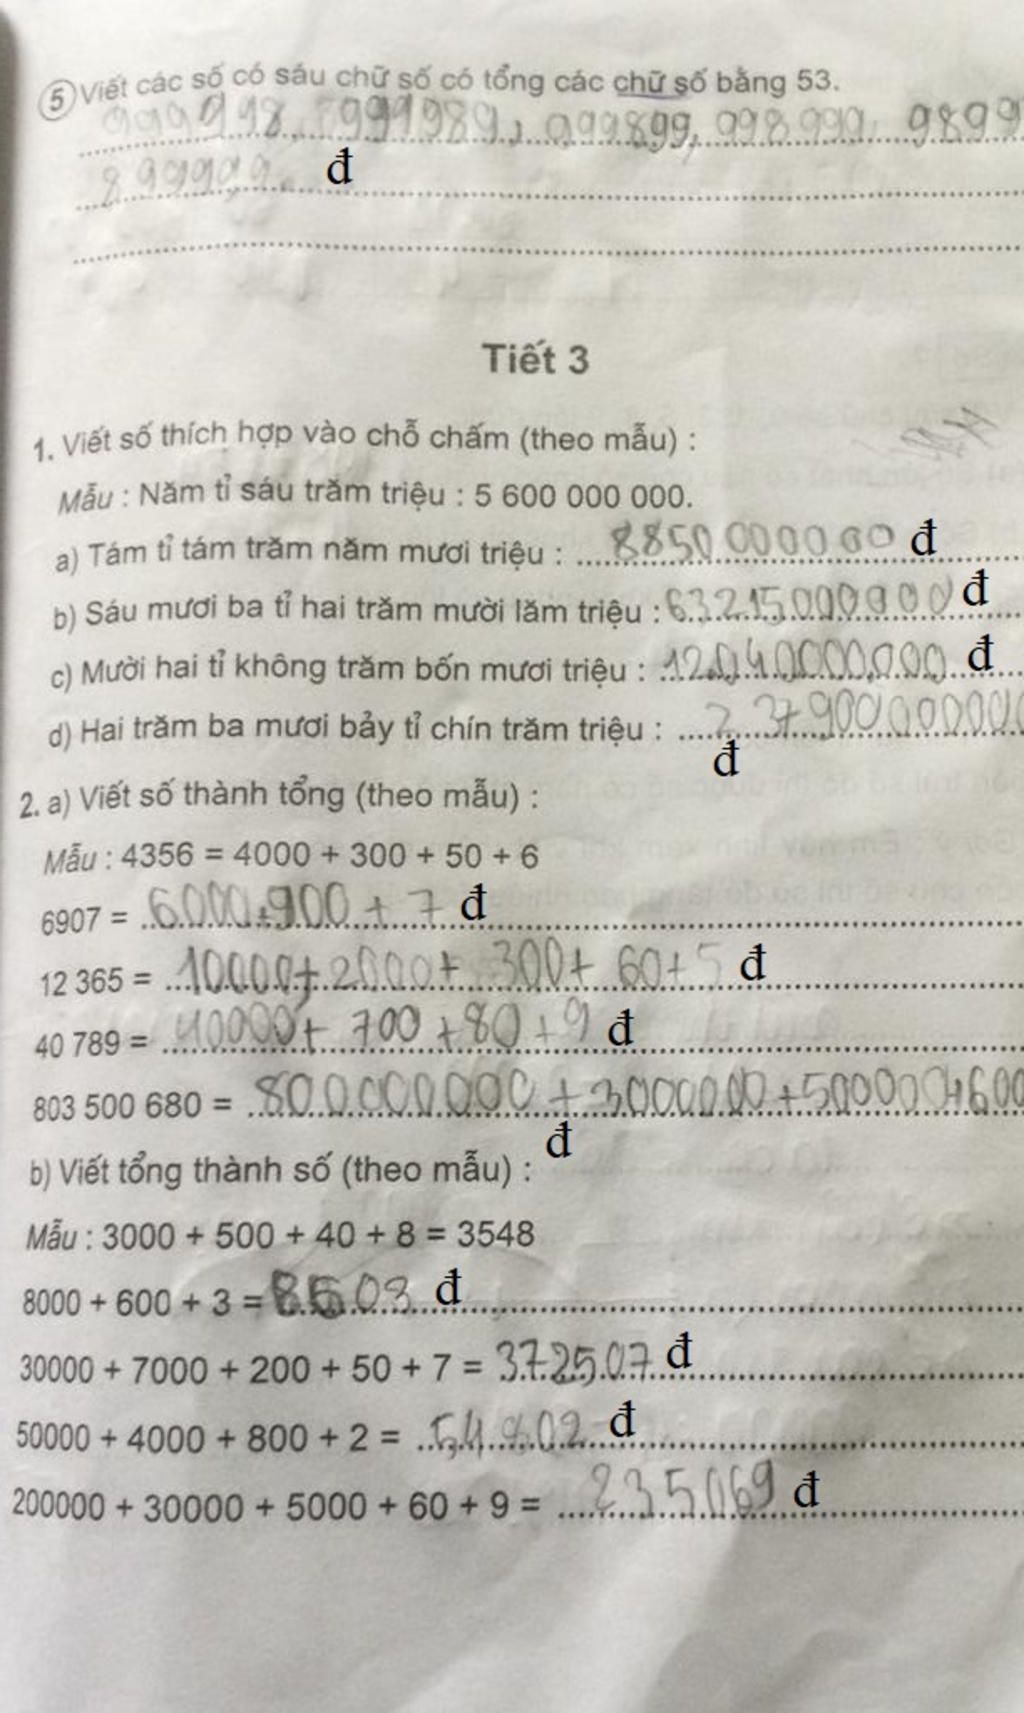 5 Viết các số có sáu chữ số có tổng các chữ số bằng 53.
999998, 999989, 999899, 998999, 9899
899999. đ
Tiết 3
1. Viết số thích hợp vào chỗ chấm (theo mẫu) :
Mẫu : Năm tỉ sáu trăm triệu : 5 600 000 000.
a) Tám tỉ tám trăm năm mươi triệu : 8850 000000 đ
b) Sáu mươi ba tỉ hai trăm mười lăm triệu : 63215000000 đ
c) Mười hai tỉ không trăm bốn mươi triệu : 12040000000 đ
d) Hai trăm ba mươi bảy tỉ chín trăm triệu : 237900000000
đ
2. a) Viết số thành tổng (theo mẫu) :
Mẫu : 4356 = 4000 + 300 + 50 + 6
6907 = 6000 + 900 + 7 đ
12 365 = 10000 + 2000 + 300 + 60 + 5 đ
40 789 = 40000 + 700 + 80 + 9 đ
803 500 680 = 800000000 + 3000000 + 500000 + 600
đ
b) Viết tổng thành số (theo mẫu) :
Mẫu : 3000 + 500 + 40 + 8 = 3548
8000 + 600 + 3 = 8603 đ
30000 + 7000 + 200 + 50 + 7 = 372507 đ
50000 + 4000 + 800 + 2 = 54802 đ
200000 + 30000 + 5000 + 60 + 9 = 235069 đ